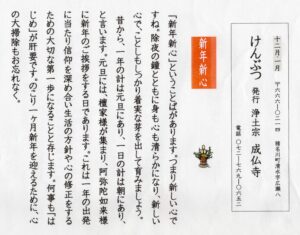 十二月一月
〒六六六ー〇二一四 猪名川町清水字広瀬八
けんぶつ 発行 浄土宗 成仏寺
電話 〇七二ー七六九ー〇六五二
新年新心
「新年新心」ということばがあります。つまり新しい心で
すね。除夜の鐘とともに身も心も清らかになり、新しい
心で、ことしもしっかり着実な芽を出して育みましょう。
昔から、一年の計は元旦にあり、一日の計は朝にあり、
と言います。元旦には、檀家様が集まり、阿弥陀如来様
に新年のご挨拶をする日であります。これは一年の出発
に当たり信仰を深め合い生活の方針や心の修正をする
ための大切な第一歩になることと存じます。何事も「は
じめ」が肝要です。のこり一ヶ月新年を迎えるために、心
の大掃除もお忘れなく。